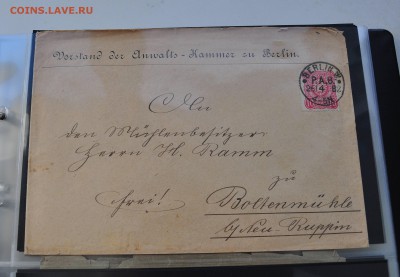 COINS.LAVE.RU
Vorstand der Anwalts-Kammer zu Berlin.
BERLIN W
P.A.8.
26 4 8
An
den Mühlenbesitzer
Herrn H. Ramm
zu
frei!
Boltenmühle
b/Neu-Ruppin